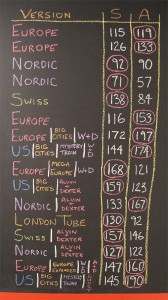 VERSION S A
EUROPE 115 119
EUROPE 126 133
NORDIC 92 90
NORDIC 71 57
SWISS 138 84
EUROPE 116 153
EUROPE BIG CITIES W+D 172 197
US BIG CITIES MYSTERY TRAIN W D 144 174
EUROPE MEGA EUROPE W+D 168 121
US BIG CITIES ALVIN + DEXTER 159 123
NORDIC ALVIN + DEXTER 133 167
LONDON TUBE 130 92
SWISS ALVIN DEXTER 157 146
NORDIC ALVIN DEXTER 127 122
EUROPE W D 147 160
US BIG CITIES 145 190